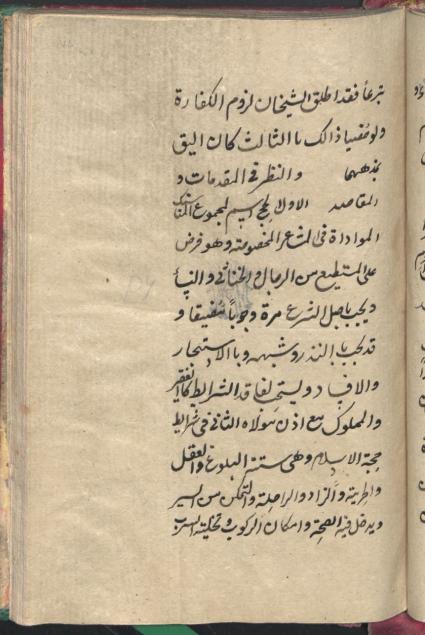 تبرعاً فقد اطلق الشيخان لزوم الكفارة
ولو قيد ذالك بالثالث كان اليق
بمذهبهما والنظر في المقدمات و
المقاصد الاولا الحج اسم لمجموع المناسك
المواداة في المشاعر المخصوصة وهو فرض
على المستطيع من الرجال والخناثي والنسأ
ويجب باصل الشرع مرة وجوباً مضيقا و
قد يجب بالنذر وشبهه وبالاستيجار
والافساد ويستحب لفاقد الشرايط كالفقير
والمملوك مع اذن مولاه الثاني في شرايط
حجة الاسلام وهي ستة البلوغ والعقل
والحرية والزاد والراحلة والتمكن من السير
ويدخل فيه الصحة وامكان الركوب وتخلية السرب